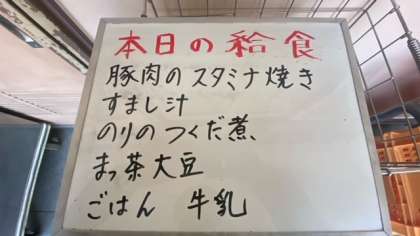 本日の給食
豚肉のスタミナ焼き
すまし汁
のりのつくだ煮
まっ茶大豆
ごはん 牛乳